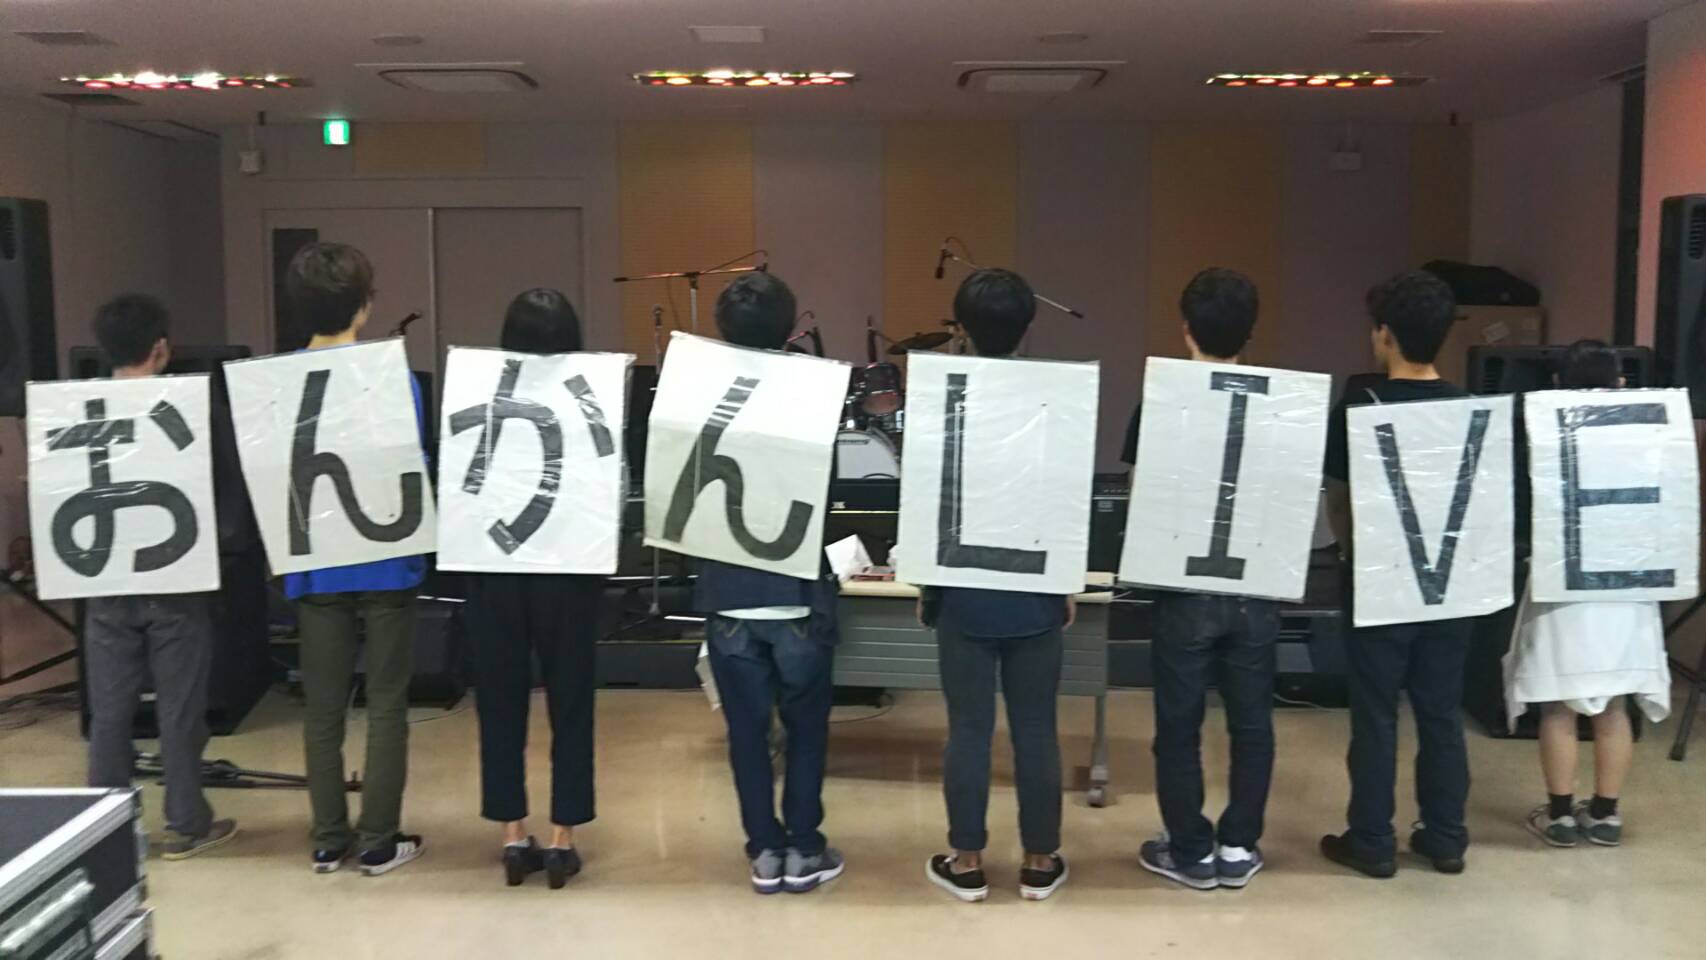 おんかんLIVE